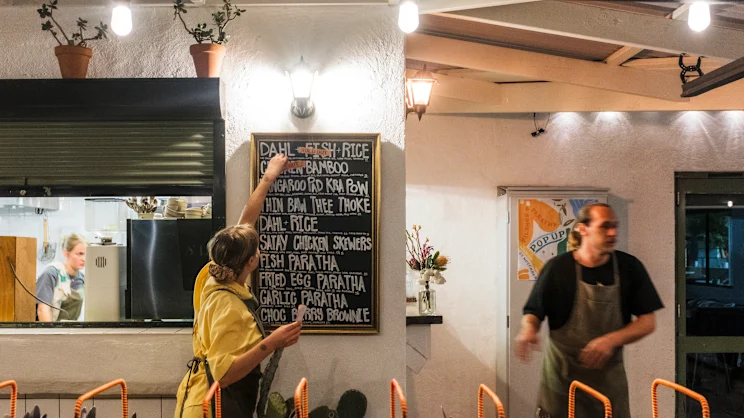 DAHL + FISH + RICE
CHICKEN BAMBOO
KANGAROO PAD KRA POW
THIN BAW THEE THOKE
DAHL RICE
SATAY CHICKEN SKEWERS
FISH PARATHA
FRIED EGG PARATHA
GARLIC PARATHA
CHOC BERRY BROWNIE
POP UP